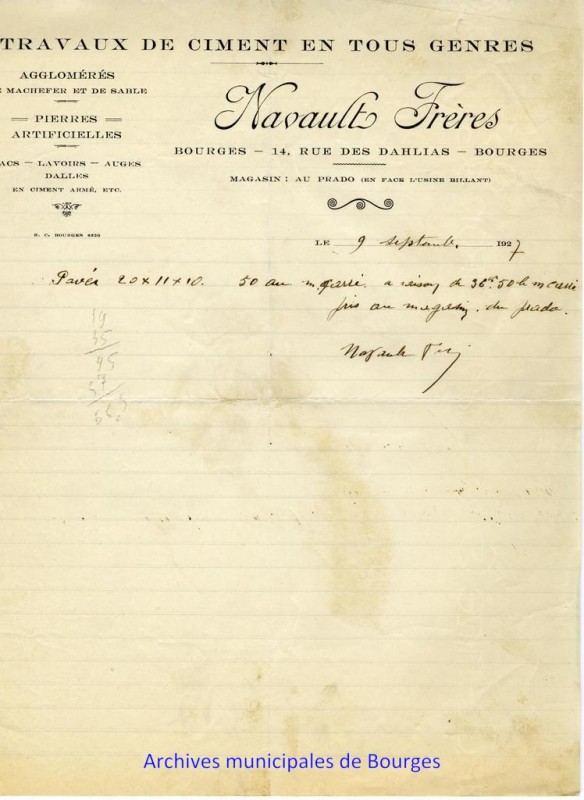 TRAVAUX DE CIMENT EN TOUS GENRES
AGGLOMÉRÉS
MACHEFER ET DE SABLE
PIERRES
ARTIFICIELLES
ACS – LAVOIRS – AUGES
DALLES
EN CIMENT ARMÉ, ETC.
R. C. BOURGES 4236
Navault Frères
BOURGES – 14, RUE DES DAHLIAS – BOURGES
MAGASIN : AU PRADO (EN FACE L'USINE BILLANT)
LE 9 septemb. 1927
Pavés 20 x 11 x 10. 50 au m. carré a raison de 36 fr 50 le m carré
pris au magasin du prado.
Navault
19
35
95
57
Archives municipales de Bourges